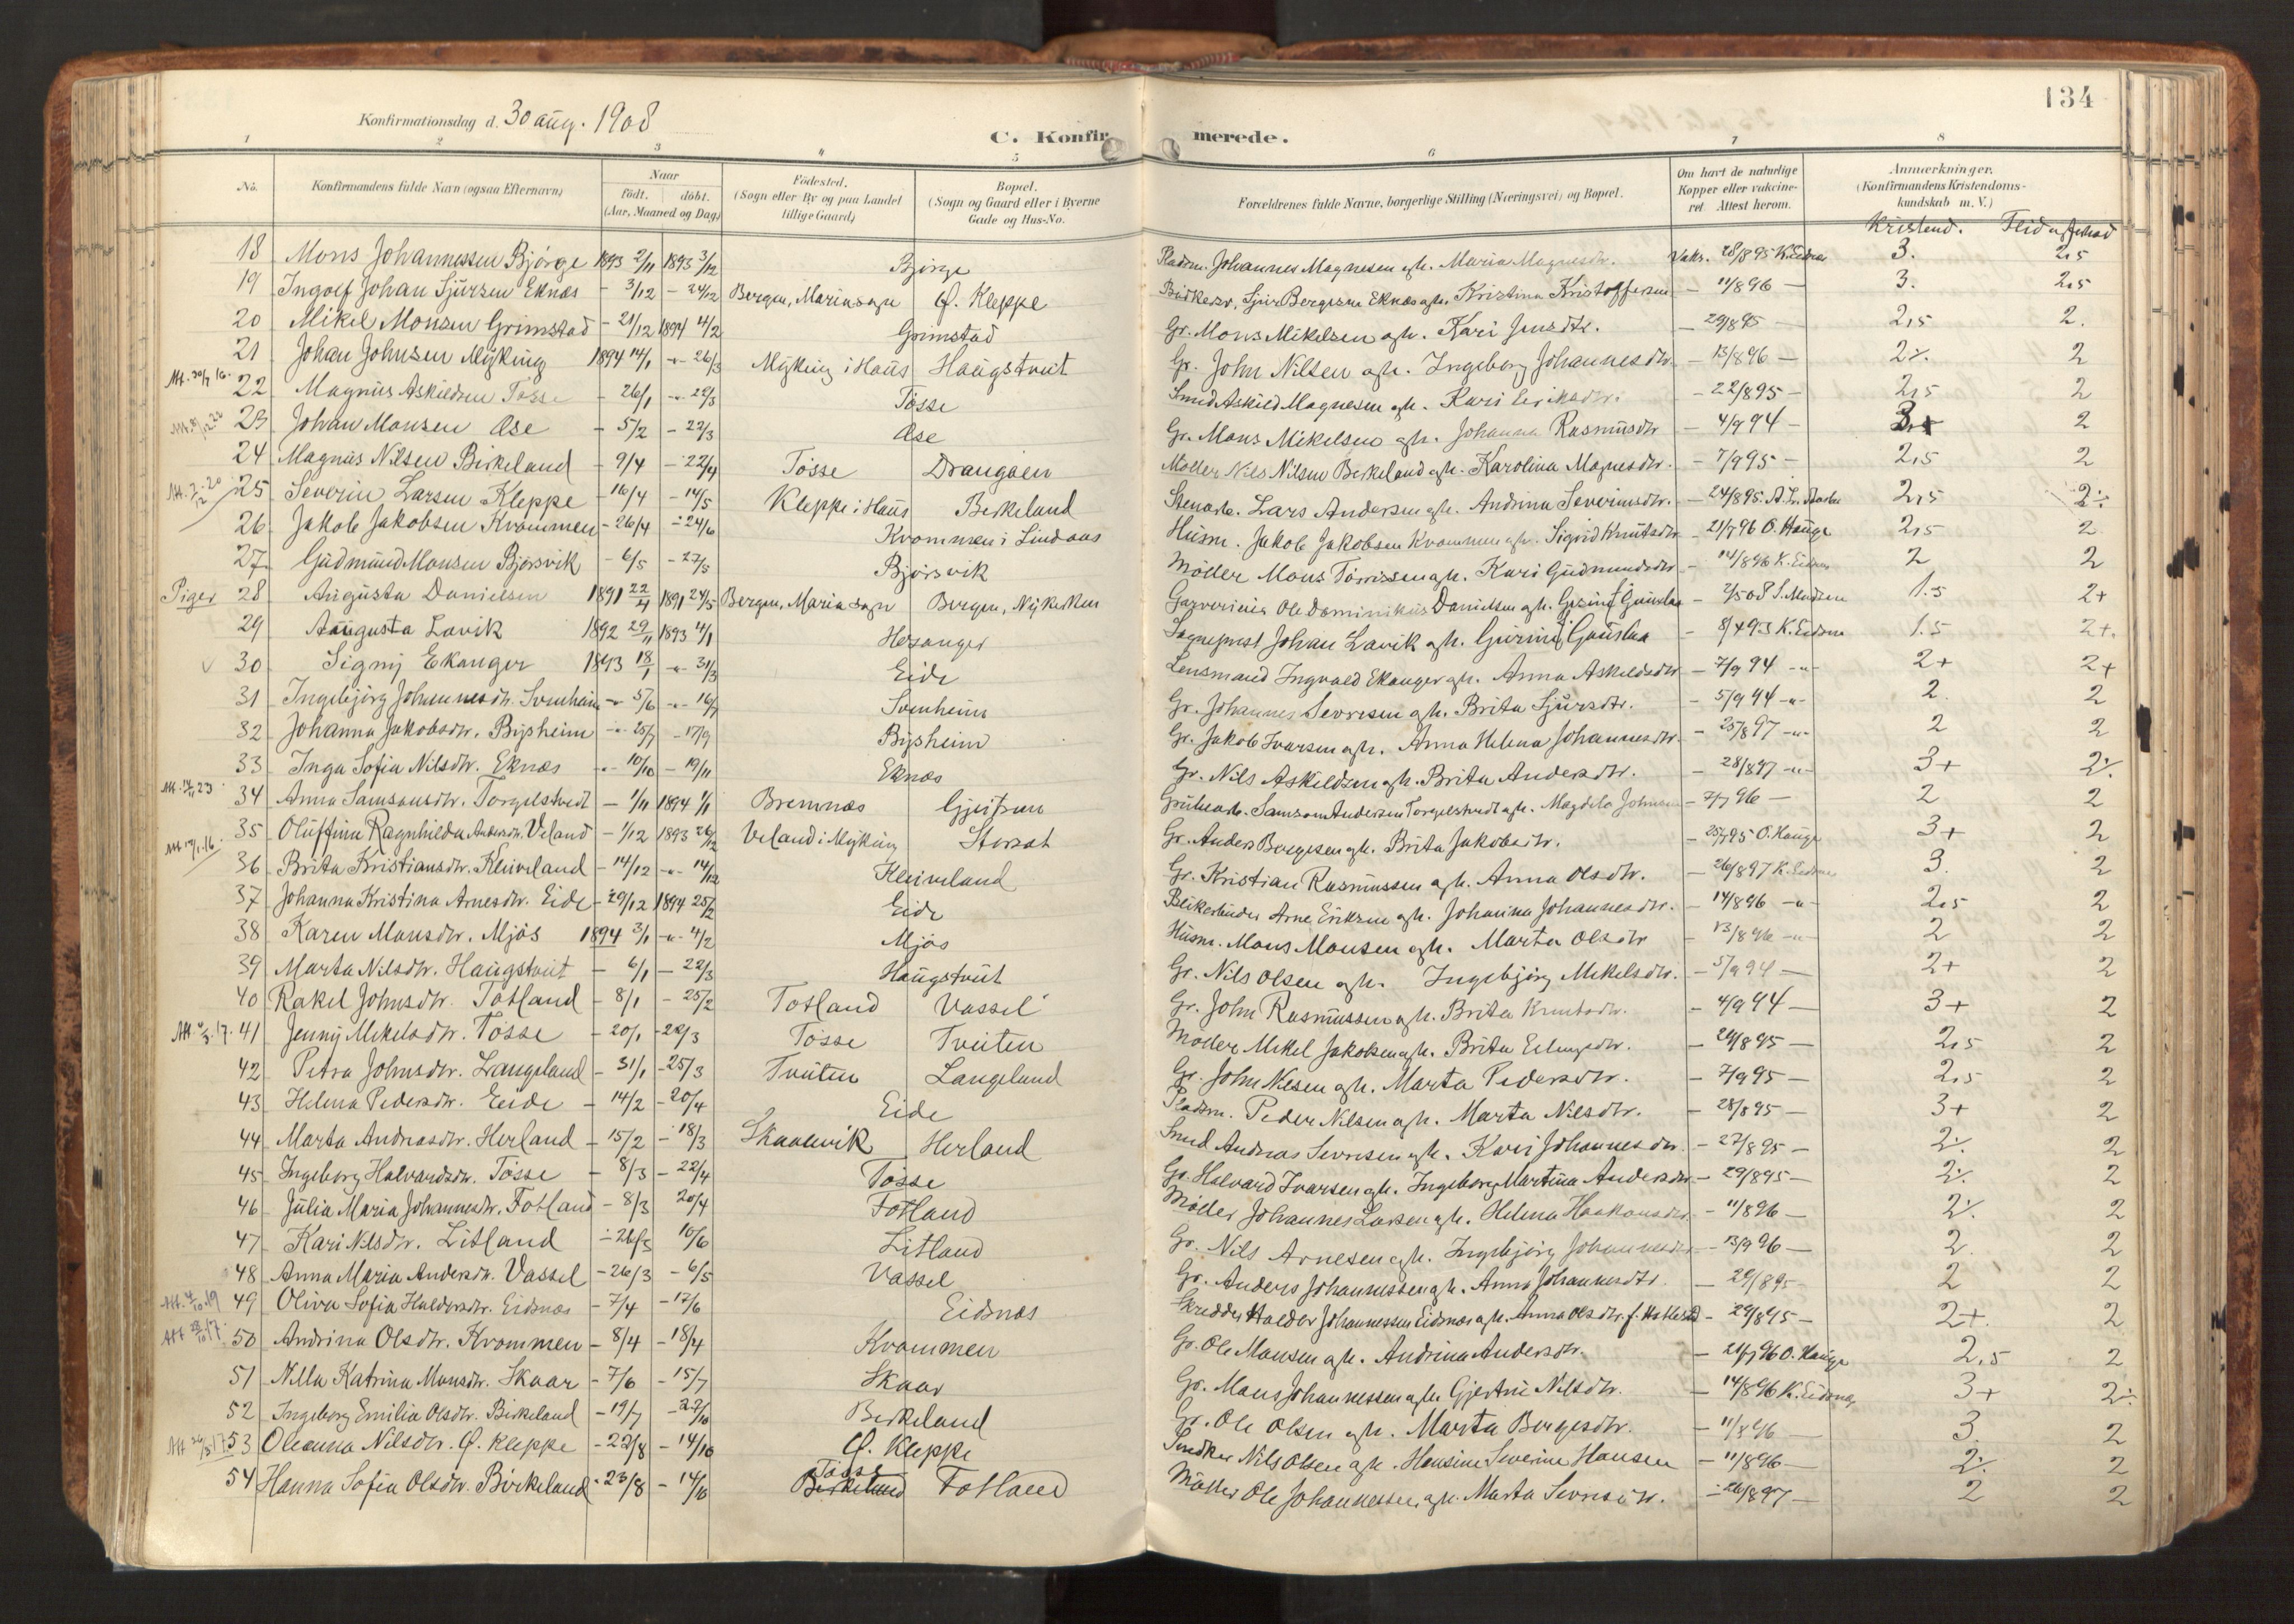 134
Konfirmationsdag d. 30 aug. 1908
C. Konfirmerede.
1 2 3 4 5 6 7 8
No. Konfirmandens fulde Navn (ogsaa Efternavn) Naar født. døbt. (Aar, Maaned og Dag) Fødested. (Sogn eller By og paa Landet tillige Gaard) Bopæl. (Sogn og Gaard eller i Byerne Gade og Hus-No. Forældrenes fulde Navne, borgerlige Stilling (Næringsvei) og Bopæl. Om havt de naturlige Kopper eller vakcineret. Attest herom. Anmærkninger. (Konfirmandens Kristendomskundskab m. V.)
Kristend. Flid og forhod
18 Mons Johannessen Bjørge 1893 2/11 1893 3/12 Bjørge Pladsm. Johannes Magnesen og h. Maria Magnesdr. Vakc. 28/8 95 K. Eidnes 3. 2,5
19 Ingolf Johan Sjursen Eknæs - 3/12 - 24/12 Bergen, Mariasogn Ø. Kleppe Bødkersv. Sjur Bergesen Eknæs og h. Kristina Kristoffersen - 11/8 96 - 3. 2,5
20 Mikel Monsen Grimstad - 21/12 1894 4/2 Grimstad Gr. Mons Mikelsen og h. Kari Jensdtr. - 29/8 95 - 2,5 2.
21 Johan Johnsen Mÿking 1894 14/1 -"- 26/3 Mÿking i Haus Haugstveit Gr. John Nilsen og h. Ingeborg Johannesdr. - 13/8 96 - 2÷. 2
Att. 20/7 16. 22 Magnus Askildsen Tösse - 26/1 -"- 22/3 Tösse Smed Askild Magnesen og h. Kari Eriksdr. - 22/8 95 - 2,5 2
23 Johan Monsen Ase - 5/2 - 22/3 Ase Gr. Mons Mikelsen og h. Johanna Rasmusdtr - 4/9 94 - 3+ 2
24 Magnus Nilsen Birkeland - 9/4 - 22/4 Tösse Drangöen Møller Nils Nilsen Birkeland og h. Karolina Magnesdr. - 7/9 95 - 2,5 2
Att. 2/12 20 25 Severin Larsen Kleppe - 16/4 - 14/5 Kleppe i Haus Birkeland Stenarb. Lars Andersen og h. Andrina Severinsdr. - 24/8 95. 2,5 2÷
26 Jakob Jakobsen Kvammen - 26/4 - 24/6 Kvammen i Lindaas Husm. Jakob Jakobsen Kvammen og h. Sigrid Knutsdr - 21/7 96 O. Hauge 2,5 2
27 Gudmund Monsen Bjørsvik - 6/5 - 27/5 Bjørsvik Møller Mons Tørrissen og h. Kari Gudmundsdr - 14/8 96 K. Eidnes 2 2
Piger 28 Augusta Danielsen 1891 22/4 1891 24/5 Bergen, Mariasogn Bergen, Nykirken Garverieier Ole Dominikus Danielsen og h. - 2/5 08 1.5 2+
29 Aaugusta Lavik 1892 29/11 1893 4/1 Hosanger Sogneprest Johan Lavik og h. - 8/4 93 K. Eidnes 1.5 2+.
30 Signy Ekanger 1893 18/1 -"- 31/3 Eide Lensmand Ingvald Ekanger og h. Anna Askildsdr - 7/9 94 -"- 2+ 2+
31 Ingebjørg Johannesdr. Svenheim -"- 5/6 -"- 16/7 Svenheim Gr. Johannes Sevresen og h. Brita Sjursdtr. - 5/9 94 -"- 2. 2
32 Johanna Jakobsdr. Bysheim -"- 25/7 - 17/9 Bysheim Gr. Jakob Ivarsen og h. Anna Helena Johannesdr. - 25/8 97 -"- 2 2
33 Inga Sofia Nilsdtr. Eknæs -"- 10/10 - 19/11 Eknæs Gr. Nils Askildsen og h. Brita Andersdtr. - 28/8 97 -"- 3+ 2÷
34 Anna Samsonsdtr. Torgelstvedt - 1/11 1894 1/1 Bremnæs Grubearb. Samson Andersen Torgelstvedt og h. Magdela - 7/7 96 - 2 2
35 Oluffina Ragnhilda Andersdr. Veland - 1/12 1893 26/12 Veland i Mÿking Storset Gr. Anders Bergesen og h. Brita Jakobsdtr. - 25/7 95 O. Hauge 3+ 2
36 Brita Kristiansdtr. Kleiveland - 14/12 -"- 14/12 Kleiveland Gr. Kristian Rasmussen og h. Anna Olsdtr. - 26/8 97 K. Eidnes 3. 2
37 Johanna Kristina Arnesdr. Eide - 29/12 1894 25/2 Eide Arne Eriksen og h. Johanna Johannesdr. - 14/8 96 -"- 2.5 2
38 Karen Monsdtr. Mjös 1894 3/1 -"- 4/2 Mjös Husm. Mons Monsen og h. Marta Olsdtr - 13/8 96 -"- 2 2
39 Marta Nilsdtr. Haugstveit - 6/1 - 22/3 Haugstveit Gr. Nils Olsen og h. Ingebjørg Mikelsdr. - 5/9 94 - 2+ 2
40 Rakel Johnsdtr. Totland - 8/1 - 25/2 Totland Vassel Gr. John Rasmussen og h. Brita Knutsdr. - 4/9 94 - 3+ 2
41 Jenny Mikelsdtr. Tösse - 20/1 - 22/3 Tösse Tveiten Møller Mikel Jakobsen og h. Brita Erlingsdr. - 24/8 95 - 2,5 2
42 Petra Johnsdtr. Langeland - 31/1 - 25/3 Tveiten Langeland Gr. John Nilsen og h. Marta Pedersdtr. - 7/9 95 - 2,5 2
43 Helena Pedersdtr. Eide - 14/2 - 20/4 Eide Pladsm. Peder Nilsen og h. Marta Nilsdtr. - 28/8 95 - 3+ 2
44 Marta Andreasdtr. Herland - 15/2 - 18/3 Skaanevik Herland Smed Andreas Sevresen og h. Kari Johannesdr. - 27/8 95 - 2÷ 2
45 Ingeborg Halvardsdr. Tösse - 8/3 - 22/4 Tösse Gr. Halvard Ivarsen og h. Ingeborg Martina Andersdr - 29/8 95 - 2÷. 2
46 Julia Maria Johannesdr. Totland - 8/3 20/4 Totland Møller Johannes Larsen og h. Helena Haakonsdr. - 11/8 96 - 2÷. 2
47 Kari Nilsdtr. Litland - 26/3 10/6 Litland Gr. Nils Arnesen og h. Ingebjørg Johannesdr - 13/9 96 - 2. 2
48 Anna Maria Andersdr. Vassel - 26/3 - 6/5 Vassel Gr. Anders Johannessen og h. Anna Johannesdtr. - 29/8 95 2 2
Att. 4/10 19 49 Oliva Sofia Haldorsdtr. Eidsnæs - 7/4 - 17/6 Eidsnæs Skredder Haldor Johannessen Eidsnæs og h. Anna Olsdtr. - 29/8 95 - 2+. 2
50 Andrina Olsdtr. Kvammen - 8/4 - 18/4 Kvammen Gr. Ole Monsen og h. Andrina Andersdtr. - 21/7 96 O. Hauge 2.5 2
51 Nilla Katrina Monsdtr. Skaar - 7/6 - 15/7 Skaar Gr. Mons Johannessen og h. Gjertrui Nilsdtr. - 14/8 96 K. Eidsnes 3+ 2÷
52 Ingeborg Emilia Olsdtr. Birkeland - 19/7 - 22/10 Birkeland Gr. Ole Olsen og h. Marta Bergesdtr. - 11/8 96 3. 2
53 Oleanna Nilsdtr. Ø. Kleppe - 22/8 - 14/10 Ø. Kleppe Snedker Nils Olsen og h. Hansine Severine Hansen - 11/8 96 - 2÷. 2
54 Hanna Sofia Olsdtr. Birkeland - 23/8 - 14/10 Tösse Birkeland Totland Møller Ole Johannessen og h. Marta Sevresdtr. - 26/8 97 - 2 2